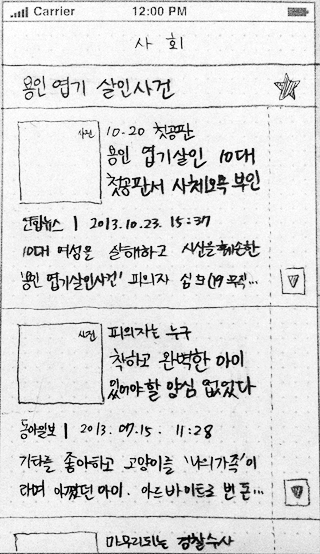 Carrier 12:00 PM
사회
용인 엽기 살인사건
사진
10.20 첫공판
용인 엽기살인 10대
첫공판서 사체오욕 부인
연합뉴스 | 2013.10.23. 15:37
10대 여성을 살해하고 시신을 훼손한
'용인 엽기살인사건' 피의자 심모(19 무직...
사진
피의자는 누구
착하고 완벽한 아이
있어야할 양심 없었다
동아일보 | 2013. 07.15. 11:28
기타를 좋아하고 고양이를 '나의가족'이
라며 아꼈던 아이. 아르바이트로 번 돈...
마무리되는 경찰수사